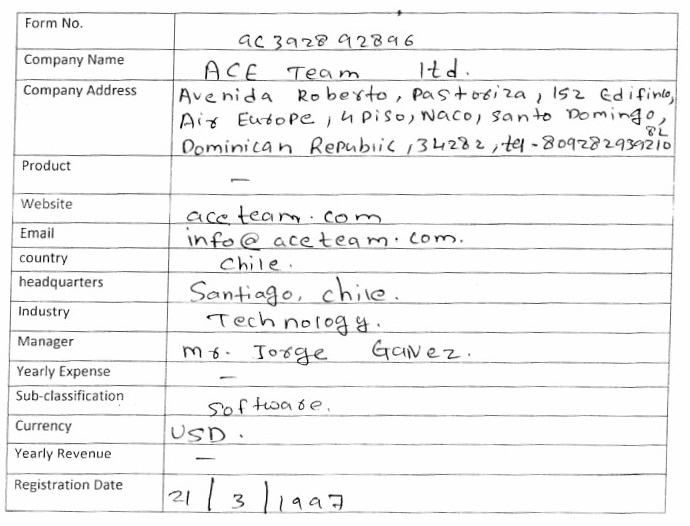 Form No.
ac3928 92896
Company Name
ACE Team ltd.
Company Address
Avenida Roberto, Pastoriza, 152 Edifinio,
Air Europe, 4 Piso, Naco, Santo Domingo,
Dominican Republic, 34282, tel - 809282939210
82
Product
—
Website
aceteam.com
Email
info@aceteam.com.
country
Chile.
headquarters
Santiago, chile.
Industry
Technology.
Manager
mr. Jorge Galvez.
Yearly Expense
—
Sub-classification
software.
Currency
USD.
Yearly Revenue
—
Registration Date
21/3/1997